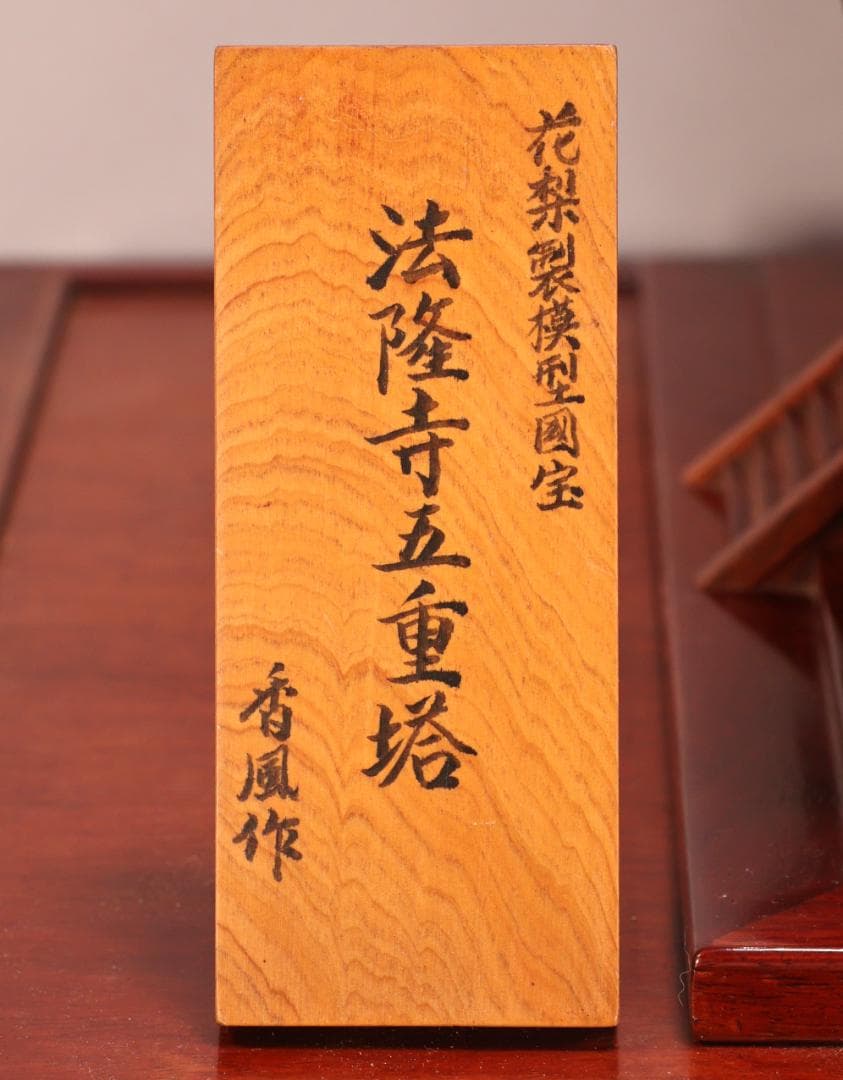 花梨製模型國宝
法隆寺五重塔
香風作